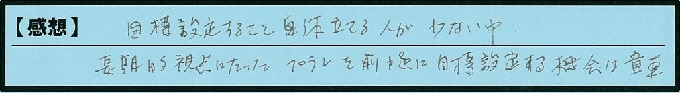 【感想】 目標設定すること自体立てる人が少ない中
長期的視点にたった プランを前提に目標設定する機会は貴重